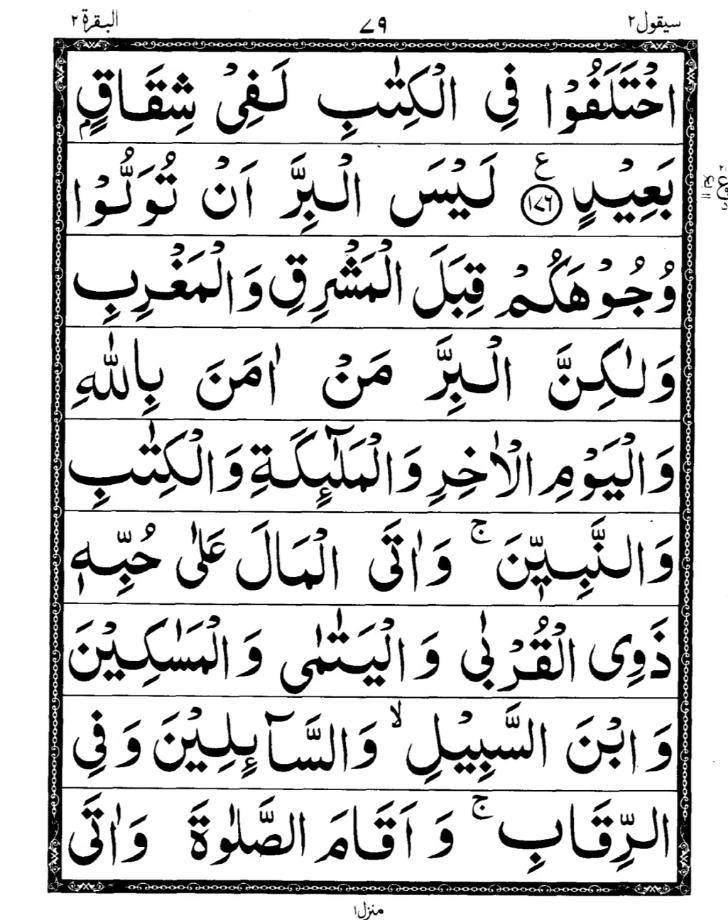 سيقول ٢ ٧٩ البقرة ٢
اخْتَلَفُوْا فِي الْكِتٰبِ لَفِيْ شِقَاقٍۭ
بَعِيْدٍ ع ١٧٦ لَيْسَ الْبِرَّ اَنْ تُوَلُّوْا
وُجُوْهَكُمْ قِبَلَ الْمَشْرِقِ وَالْمَغْرِبِ
وَلٰكِنَّ الْبِرَّ مَنْ اٰمَنَ بِاللّٰهِ
وَالْيَوْمِ الْاٰخِرِ وَالْمَلٰٓئِكَةِ وَالْكِتٰبِ
وَالنَّبِيّٖنَ ۚ وَاٰتَى الْمَالَ عَلٰى حُبِّهٖ
ذَوِى الْقُرْبٰى وَالْيَتٰمٰى وَالْمَسٰكِيْنَ
وَابْنَ السَّبِيْلِ ۙ وَالسَّآئِلِيْنَ وَفِي
الرِّقَابِ ۚ وَاَقَامَ الصَّلٰوةَ وَاٰتَى
منزل ١